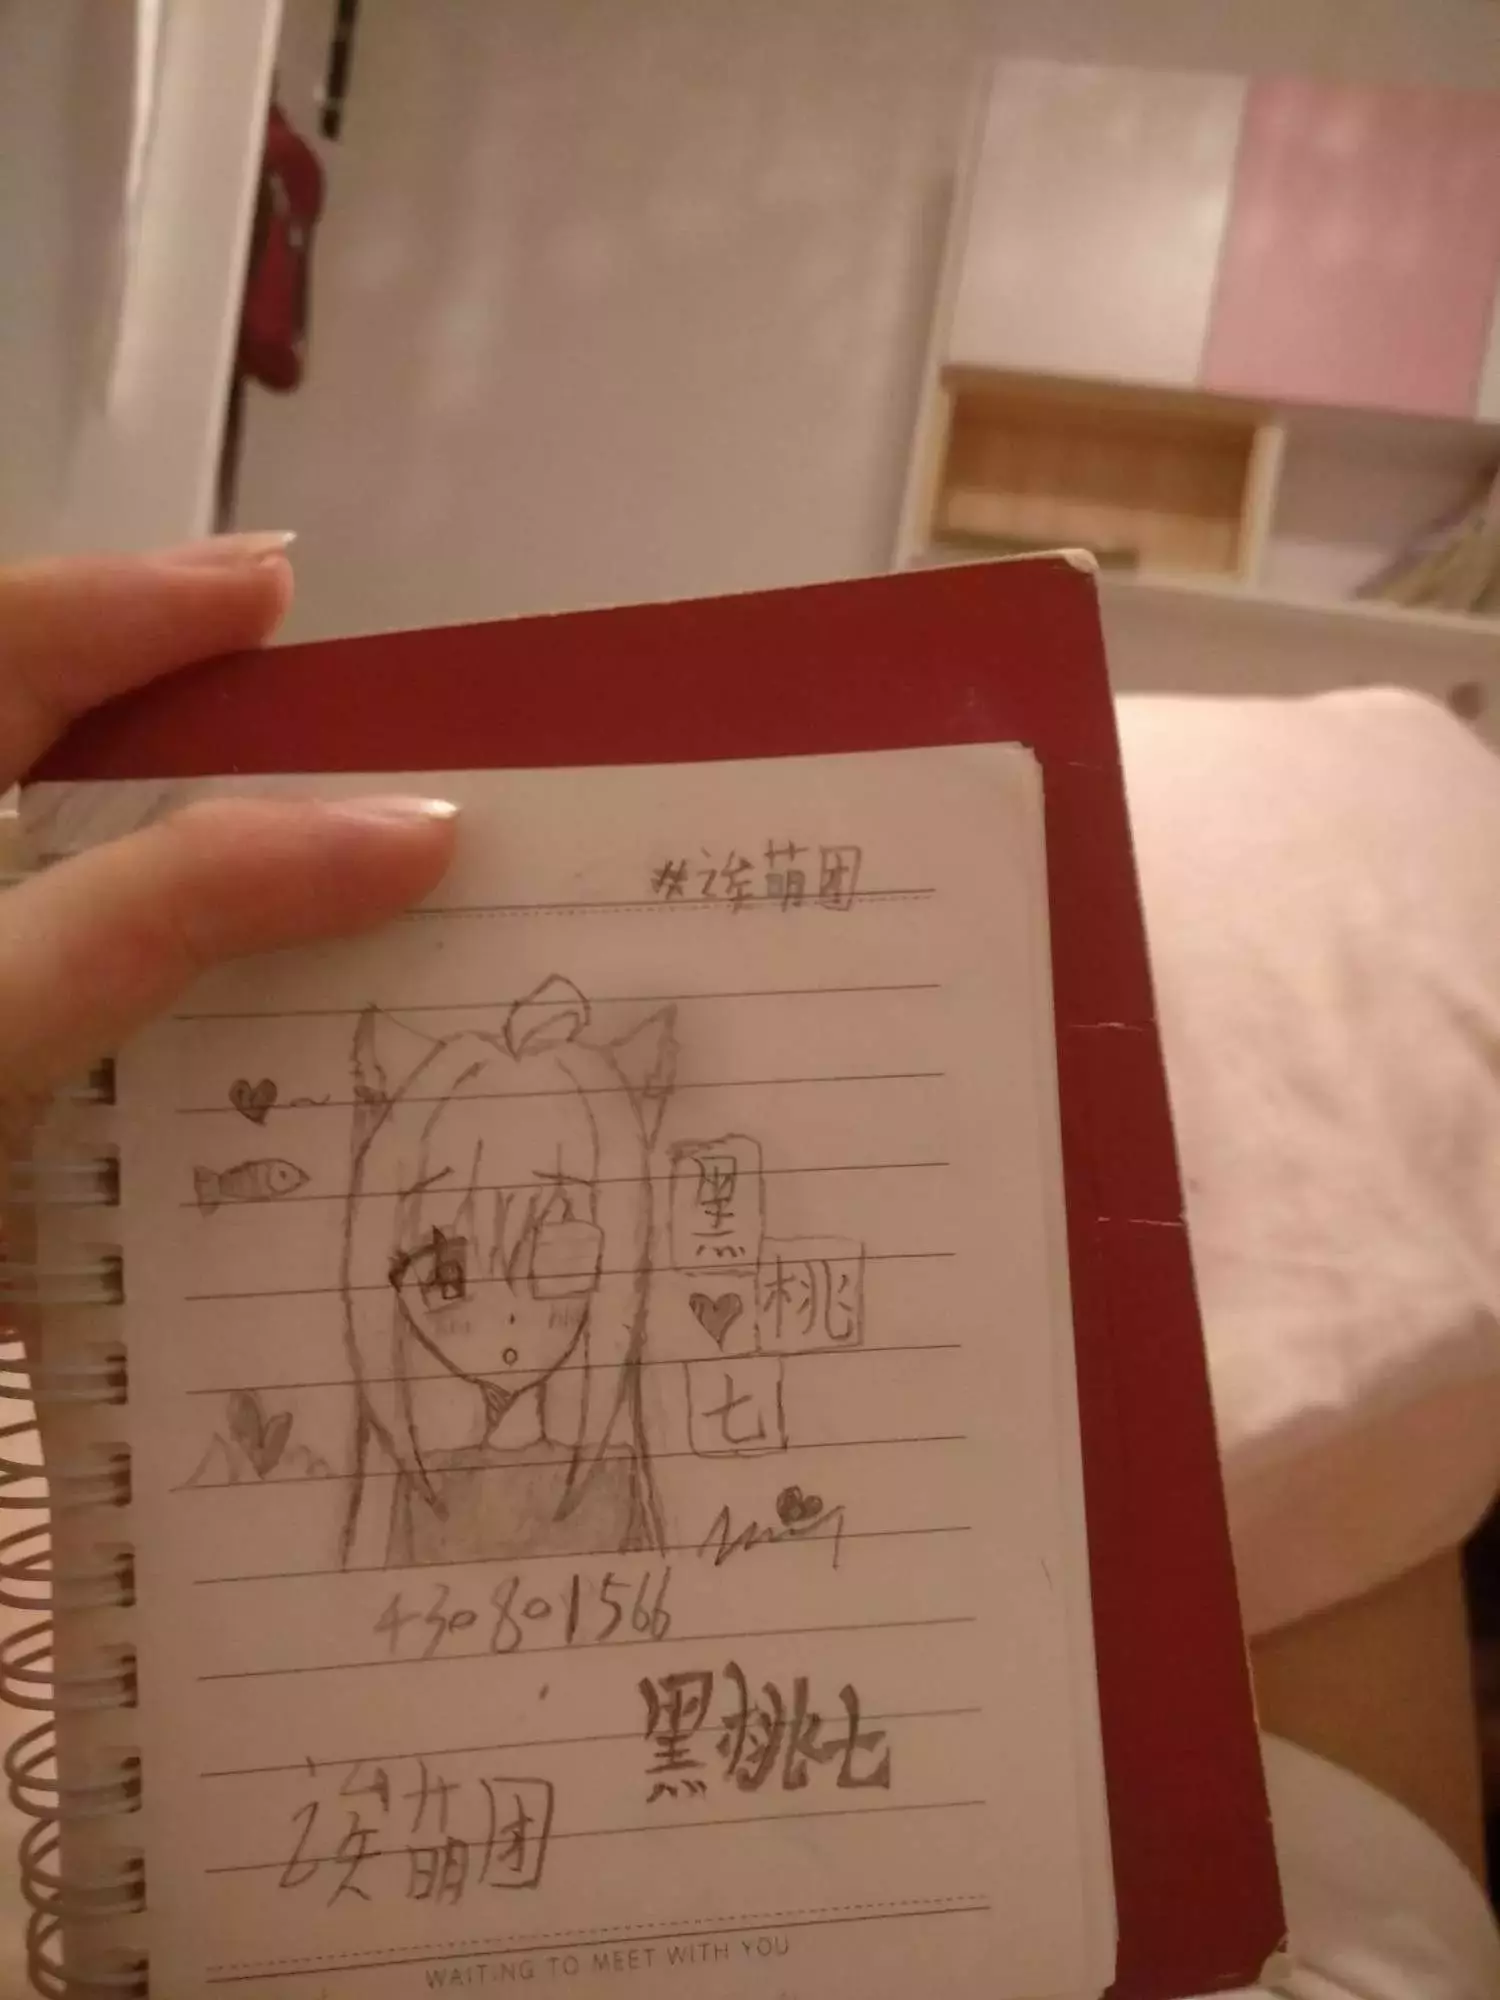 #诶萌团
黑
桃
七
430801566
黑桃七
诶萌团
WAITING TO MEET WITH YOU